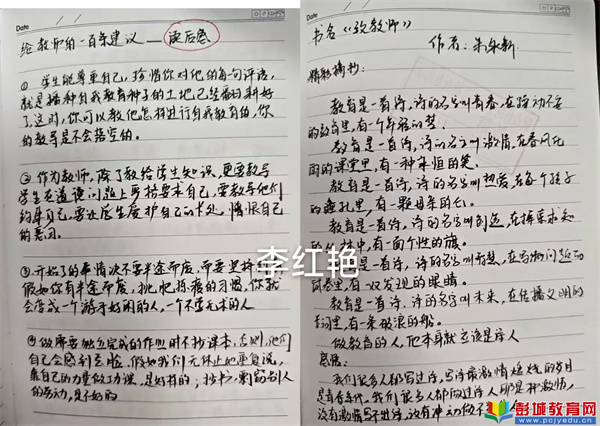 Date
给教师的一百条建议——读后感
① 学生能尊重自己,珍惜你对他的每句评语,
就是播种自我教育种子的土地已经翻耕好
了,这时,你可以教他怎样进行自我教育的,你
的教导是不会落空的。
② 作为教师,除了教给学生知识,更要教导
学生在道德问题上严格要求自己,要教导他们
约束自己,要让学生爱护自己的长处,憎恨自己
的恶习。
③ 开始了的事情决不要半途而废,而要坚持
假如你有半途而废,挑肥拣瘦的习惯,你就
会变成一个游手好闲的人,一个不学无术的人
④ 做需要独立完成的作业时不抄课本,否则,他们
自己会感到丢脸,
靠自己的力量做功课,是好样的;抄书,剽窃别人
的劳动,是不好的
Date
书名《致教师》
作者:朱永新
精彩摘抄:
教育是一首诗,诗的名字叫青春,在躁动不安
的教育里,有一个年轻的梦。
教育是一首诗,诗的名字叫激情,在春风化
雨的课堂里,有一种永恒的笑。
教育是一首诗,诗的名字叫热爱,在每个孩子
的瞳孔里,有一颗母亲的心。
教育是一首诗,诗的名字叫创造,在探索求知
的丛林中,有一面个性的旗。
是一首诗,诗的名字叫智慧,在
有一双发现的眼睛。
教育是一首诗,诗的名字叫未来,在传播文明的
长河里,有一条破浪的船。
做教育的人,他本身就应该是诗人
感悟:
我们很多人都写过诗,写诗最激情燃烧的岁月
是青春年代,我们很多人都做过诗人
没有激情写不出诗,没有冲动做不
李红艳
彭城教育网
www.pcjyedu.cn